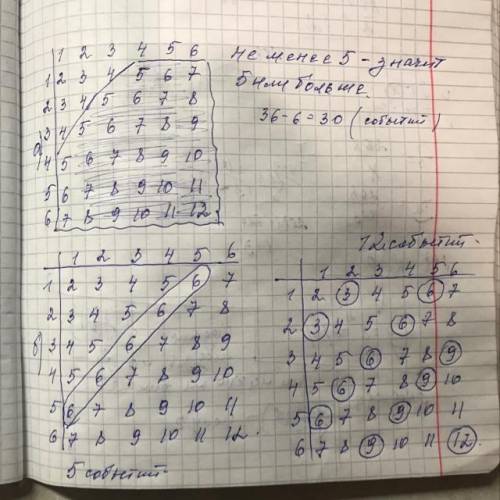 1 2 3 4 5 6
1 2 3 4 5 6 7
2 3 4 5 6 7 8
3 4 5 6 7 8 9
4 5 6 7 8 9 10
5 6 7 8 9 10 11
6 7 8 9 10 11 12
не менее 5 - значит
5 или больше.
36-6=30 (событий)
1 2 3 4 5 6
1 2 3 4 5 6 7
2 3 4 5 6 7 8
б) 3 4 5 6 7 8 9
4 5 6 7 8 9 10
5 6 7 8 9 10 11
6 7 8 9 10 11 12.
5 событий.
12 событий.
1 2 3 4 5 6
1 2 3 4 5 6 7
2 3 4 5 6 7 8
3 4 5 6 7 8 9
4 5 6 7 8 9 10
5 6 7 8 9 10 11
6 7 8 9 10 11 12.